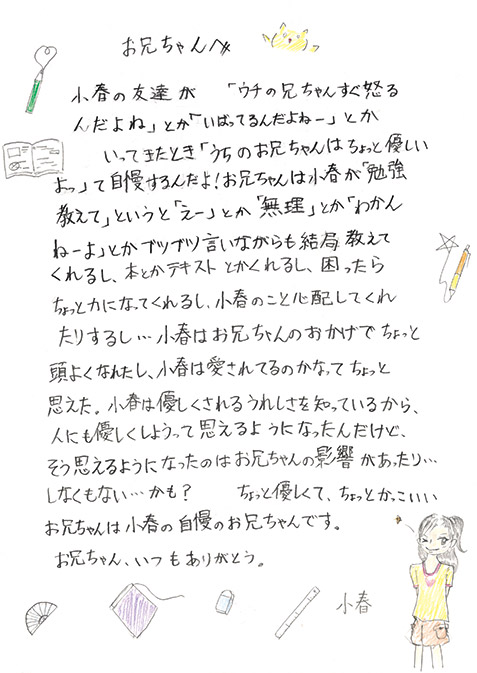 お兄ちゃんへ
小春の友達が 「ウチの兄ちゃんすぐ怒る
んだよね」とか「いばってるんだよねー」とか
いってきたとき「うちのお兄ちゃんはちょっと優しい
よっ」て自慢するんだよ!お兄ちゃんは小春が「勉強
教えて」というと「えー」とか「無理」とか「わかん
ねーよ」とかブツブツ言いながらも結局教えて
くれるし、本とかテキストとかくれるし、困ったら
ちょっと力になってくれるし、小春のこと心配してくれ
たりするし…小春はお兄ちゃんのおかげでちょっと
頭よくなれたし、小春は愛されてるのかなってちょっと
思えた。小春は優しくされるうれしさを知っているから、
人にも優しくしようって思えるようになったんだけど、
そう思えるようになったのはお兄ちゃんの影響があったり…
しなくもない…かも? ちょっと優しくて、ちょっとかっこいい
お兄ちゃんは小春の自慢のお兄ちゃんです。
お兄ちゃん、いつもありがとう。
小春